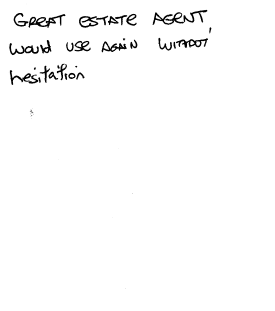 GREAT ESTATE AGENT,
WOULD USE AGAIN WITHOUT
hesitation